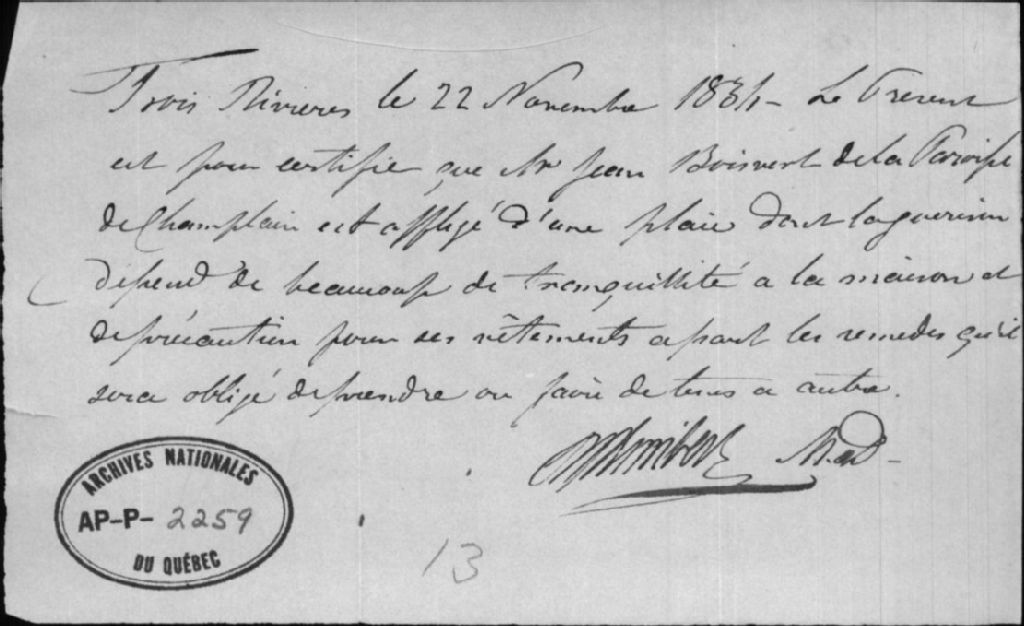 Trois Rivieres le 22 Novembre 1834 - Le Present
est pour certifier que Mr Jean Boisvert de la Paroisse
de Champlain est affligé d'une plaie dont la guerison
depend de beaucoup de tranquillité a la maison et
de précaution pour ses vêtements apart les remedes qu'il
sera obligé de prendre ou faire de tems a autre.
ARCHIVES NATIONALES
AP-P-2259
DU QUÉBEC
13